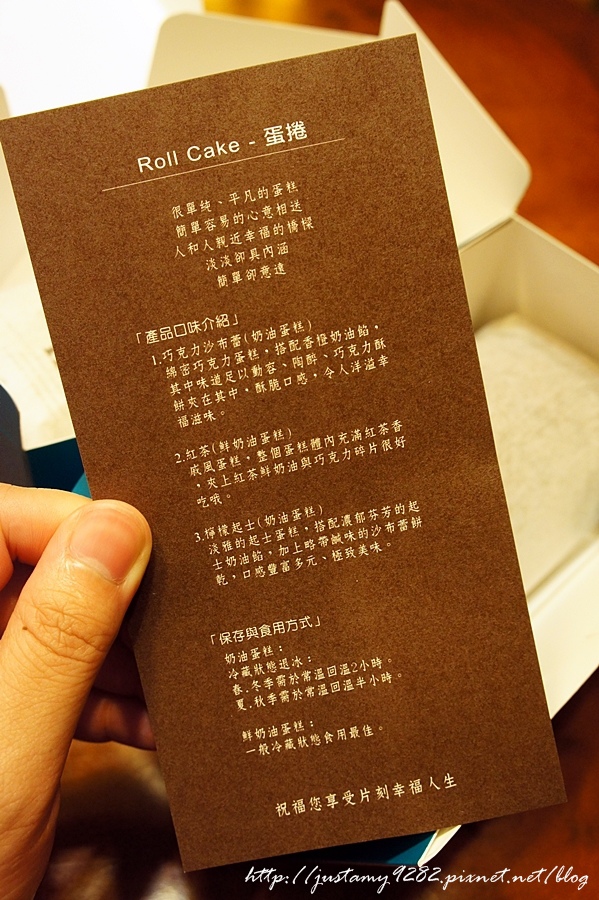 Roll Cake - 蛋捲
很單純、平凡的蛋糕
簡單容易的心意相送
人和人親近幸福的橋樑
淡淡卻具內涵
簡單卻意遠
「產品口味介紹」
1.巧克力沙布蕾(奶油蛋糕)
綿密巧克力蛋糕，搭配香橙奶油餡，
其中味道足以動容、陶醉、巧克力酥
餅夾在其中，酥脆口感，令人洋溢幸
福滋味。
2.紅茶(鮮奶油蛋糕)
戚風蛋糕，整個蛋糕體內充滿紅茶香
，夾上紅茶鮮奶油與巧克力碎片很好
吃哦。
3.檸檬起士(奶油蛋糕)
淡雅的起士蛋糕，搭配濃郁芬芳的起
士奶油餡，加上略帶鹹味的沙布蕾餅
乾，口感豐富多元、極致美味。
「保存與食用方式」
奶油蛋糕：
冷藏狀態退冰：
春.冬季需於常溫回溫2小時。
夏.秋季需於常溫回溫半小時。
鮮奶油蛋糕：
一般冷藏狀態食用最佳。
祝福您享受片刻幸福人生
http://justamy9282.pixnet.net/blog